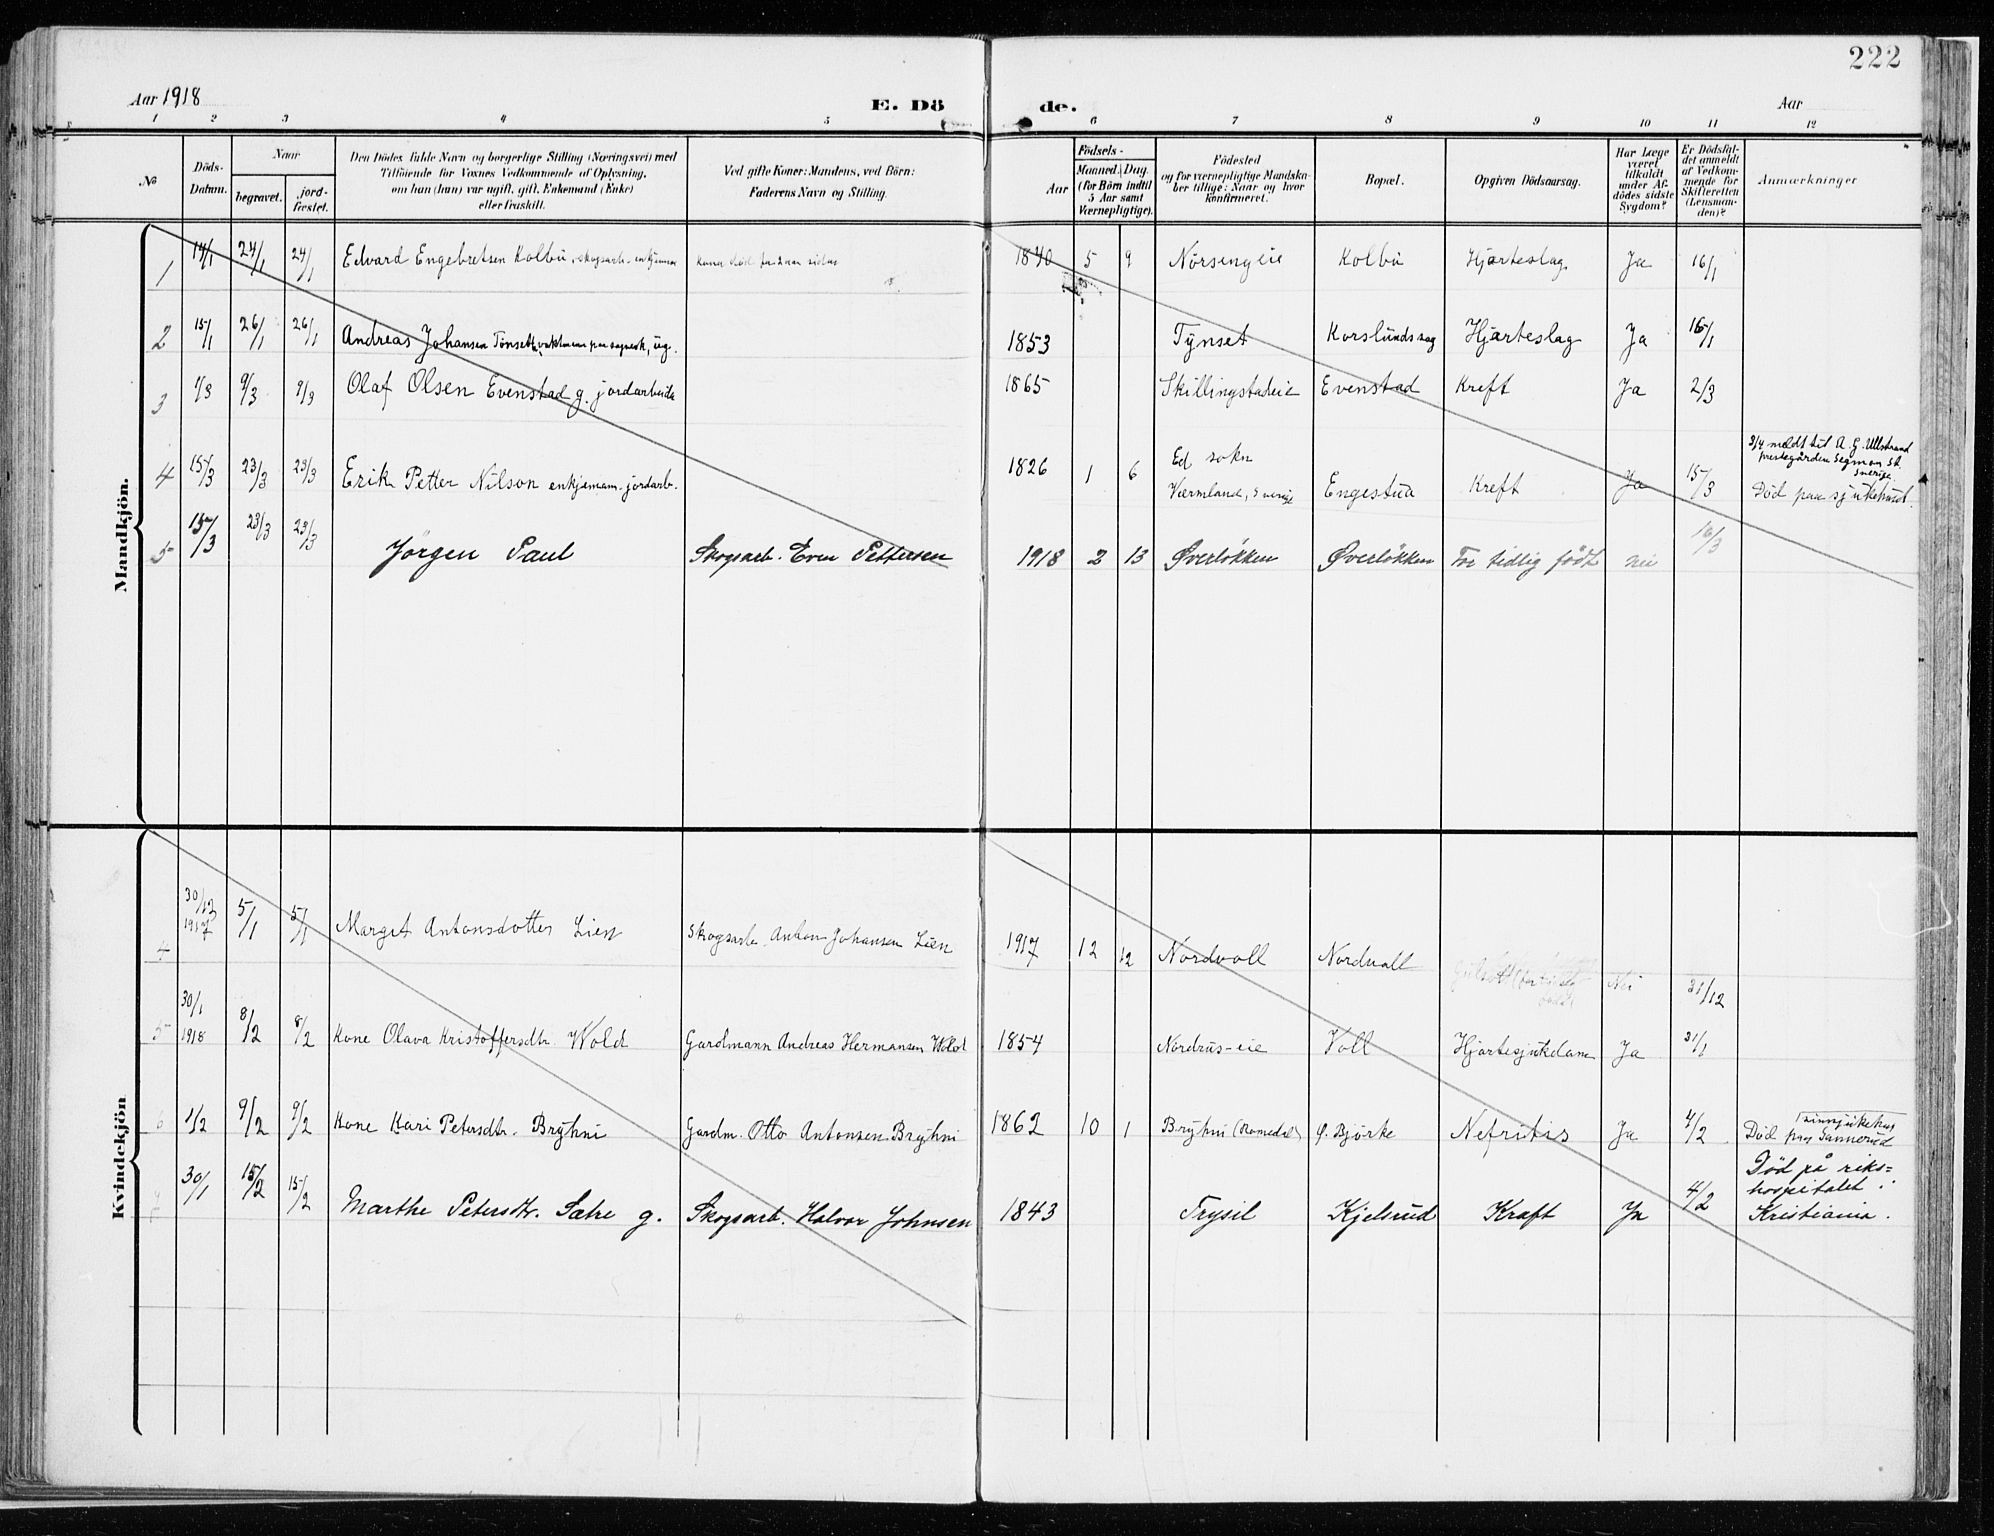 222
Aar 1918
E. Dö de.
Aar
1 2 3 4 5 6 7 8 9 10 11 12
No
Döds-
Datum.
Naar
begravet.
jord-
fæstet.
Den Dödes fulde Navn og borgerlige Stilling (Næringsvei) med
Tilföiende for Voxnes Vedkommende af Oplysning,
om han (hun) var ugift, gift, Enkemand (Enke)
eller fraskilt.
Ved gifte Koner: Mandens, ved Börn:
Faderens Navn og Stilling.
Födsels-
Aar
Maaned. Dag.
(for Börn indtil
5 Aar samt
Værnepligtige).
Födested
og for værnepligtige Mandska-
ber tillige: Naar og hvor
konfirmeret.
Bopæl.
Opgiven Dödsaarsag.
Har Læge
været
tilkaldt
under Af-
dödes sidste
Sygdom?
Er Dödsfal-
det anmeldt
af Vedkom-
mende for
Skifteretten
(Lensman-
den)?
Anmærkninger
Mandkjön.
1 14/1 24/1 24/1 Edvard Engebretsen Kolbu, skogsarb. enkjemann 1840 5 9 Nörsengeie Kolbu Hjarteslag Ja 16/1
2 15/1 26/1 26/1 Andreas Johansen Tönsett, ug. 1853 Tynset Korslundssag Hjarteslag Ja 16/1
3 1/3 9/3 9/3 Olaf Olsen Evenstad g. jordarbeide 1865 Skillingstadeie Evenstad Kreft Ja 2/3
4 15/3 23/3 23/3 Erik Petter Nilson enkjemann jordarb. 1826 1 6 Ed sokn
Værmland, Sverige Engestua Kreft Ja 15/3 3/4 meldt til A. G. Ullstrand
prestegården Segmon st.
Sverige.
Död paa sjukehuset.
5 15/3 23/3 23/3 Jörgen Paul Skogsarb. Even Pettersen 1918 2 13 Øverløkken Øverløkken For tidlig født nei 16/3
Kvindekjön
4 30/12
1917 5/1 5/1 Margit Antonsdotter Lien Skogsarb. Anton Johansen Lien 1917 12 12 Nordvoll Nordvoll Nei 31/12
5 30/1
1918 8/2 8/2 Kone Olava Kristoffersdtr. Wold Gardmann Andreas Hermansen Wold 1854 Nordrus-eie Voll Hjartesjukdom Ja 31/1
6 1/2 9/2 9/2 Kone Kari Petersdtr. Bryhni Gardm. Otto Antonsen Bryhni 1862 10 1 Bryhni (Romedal) Ø. Björke Nefritis Ja 4/2 sinnsjukehus
Död paa Sannerud
30/1 15/2 15/2 Marthe Petersdtr. Sætre g. Skogsarb. Halvor Johnsen 1843 Trysil Kjelsrud Kræft Ja 4/2 Död på riks=
hospitalet i
Kristiania.